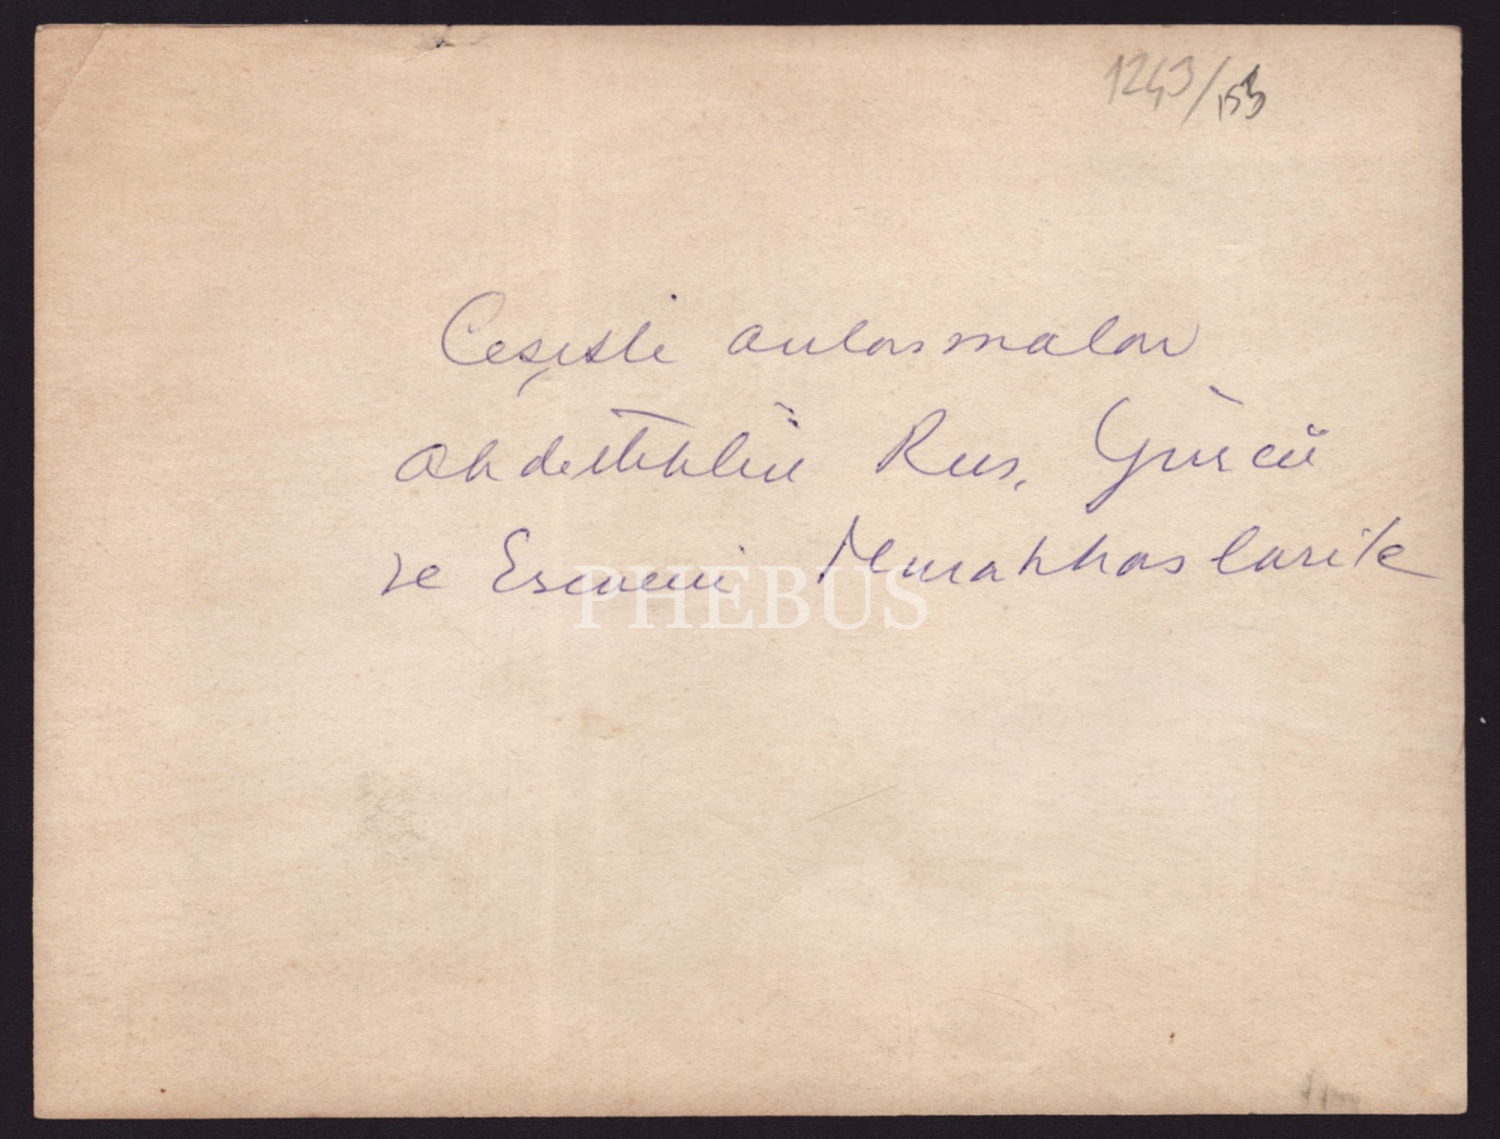 1243/153
Çeşitli anlaşmalar
akdettiğimiz Rus, Gürcü
ve Ermeni Murahhaslarile
PHEBUS